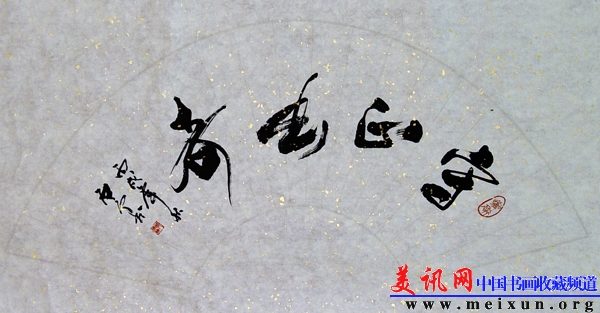 守正出奇
美讯网 中国书画收藏频道
www.meixun.org